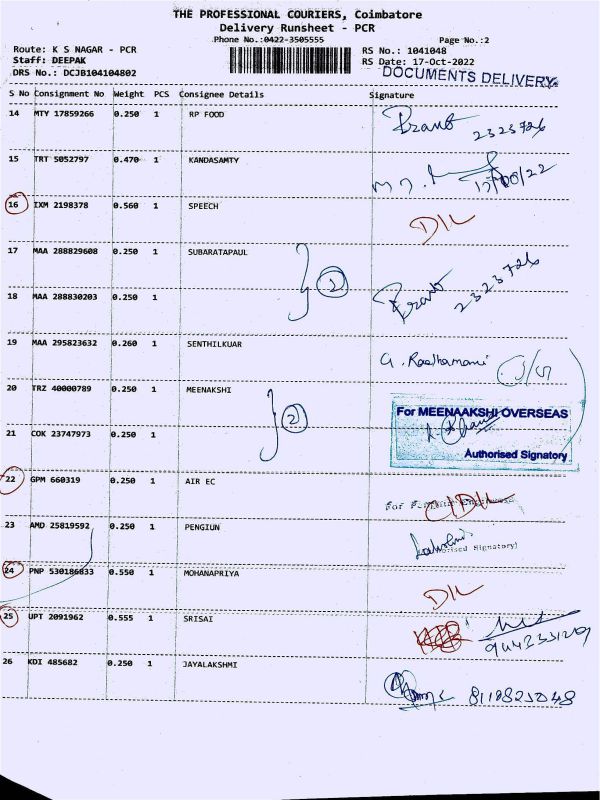 THE PROFESSIONAL COURIERS, Coimbatore
Delivery Runsheet - PCR
Phone No.:0422-3505555 Page No.:2
Route: K S NAGAR - PCR RS No.: 1041048
Staff: DEEPAK RS Date: 17-Oct-2022
DRS No.: DCJB104104802 DOCUMENTS DELIVERY
S No Consignment No Weight PCS Consignee Details Signature
14 MTY 17859266 0.250 1 RP FOOD 2323726
15 TRT 5052797 0.470 1 KANDASAMTY 17/10/22
16 IXM 2198378 0.560 1 SPEECH D/L
17 MAA 288829608 0.250 1 SUBARATAPAUL
2 2323726
18 MAA 288830203 0.250 1
19 MAA 295823632 0.260 1 SENTHILKUAR G. Radhamani
20 TRZ 40000789 0.250 1 MEENAKSHI
2 For MEENAAKSHI OVERSEAS
21 COK 23747973 0.250 1
Authorised Signatory
22 GPM 660319 0.250 1 AIR EC D/L
For
23 AMD 25819592 0.250 1 PENGIUN Lakshmi
Authorised Signatory
24 PNP 530186833 0.550 1 MOHANAPRIYA D/L
25 UPT 2091962 0.555 1 SRISAI
26 KDI 485682 0.250 1 JAYALAKSHMI 8118825048